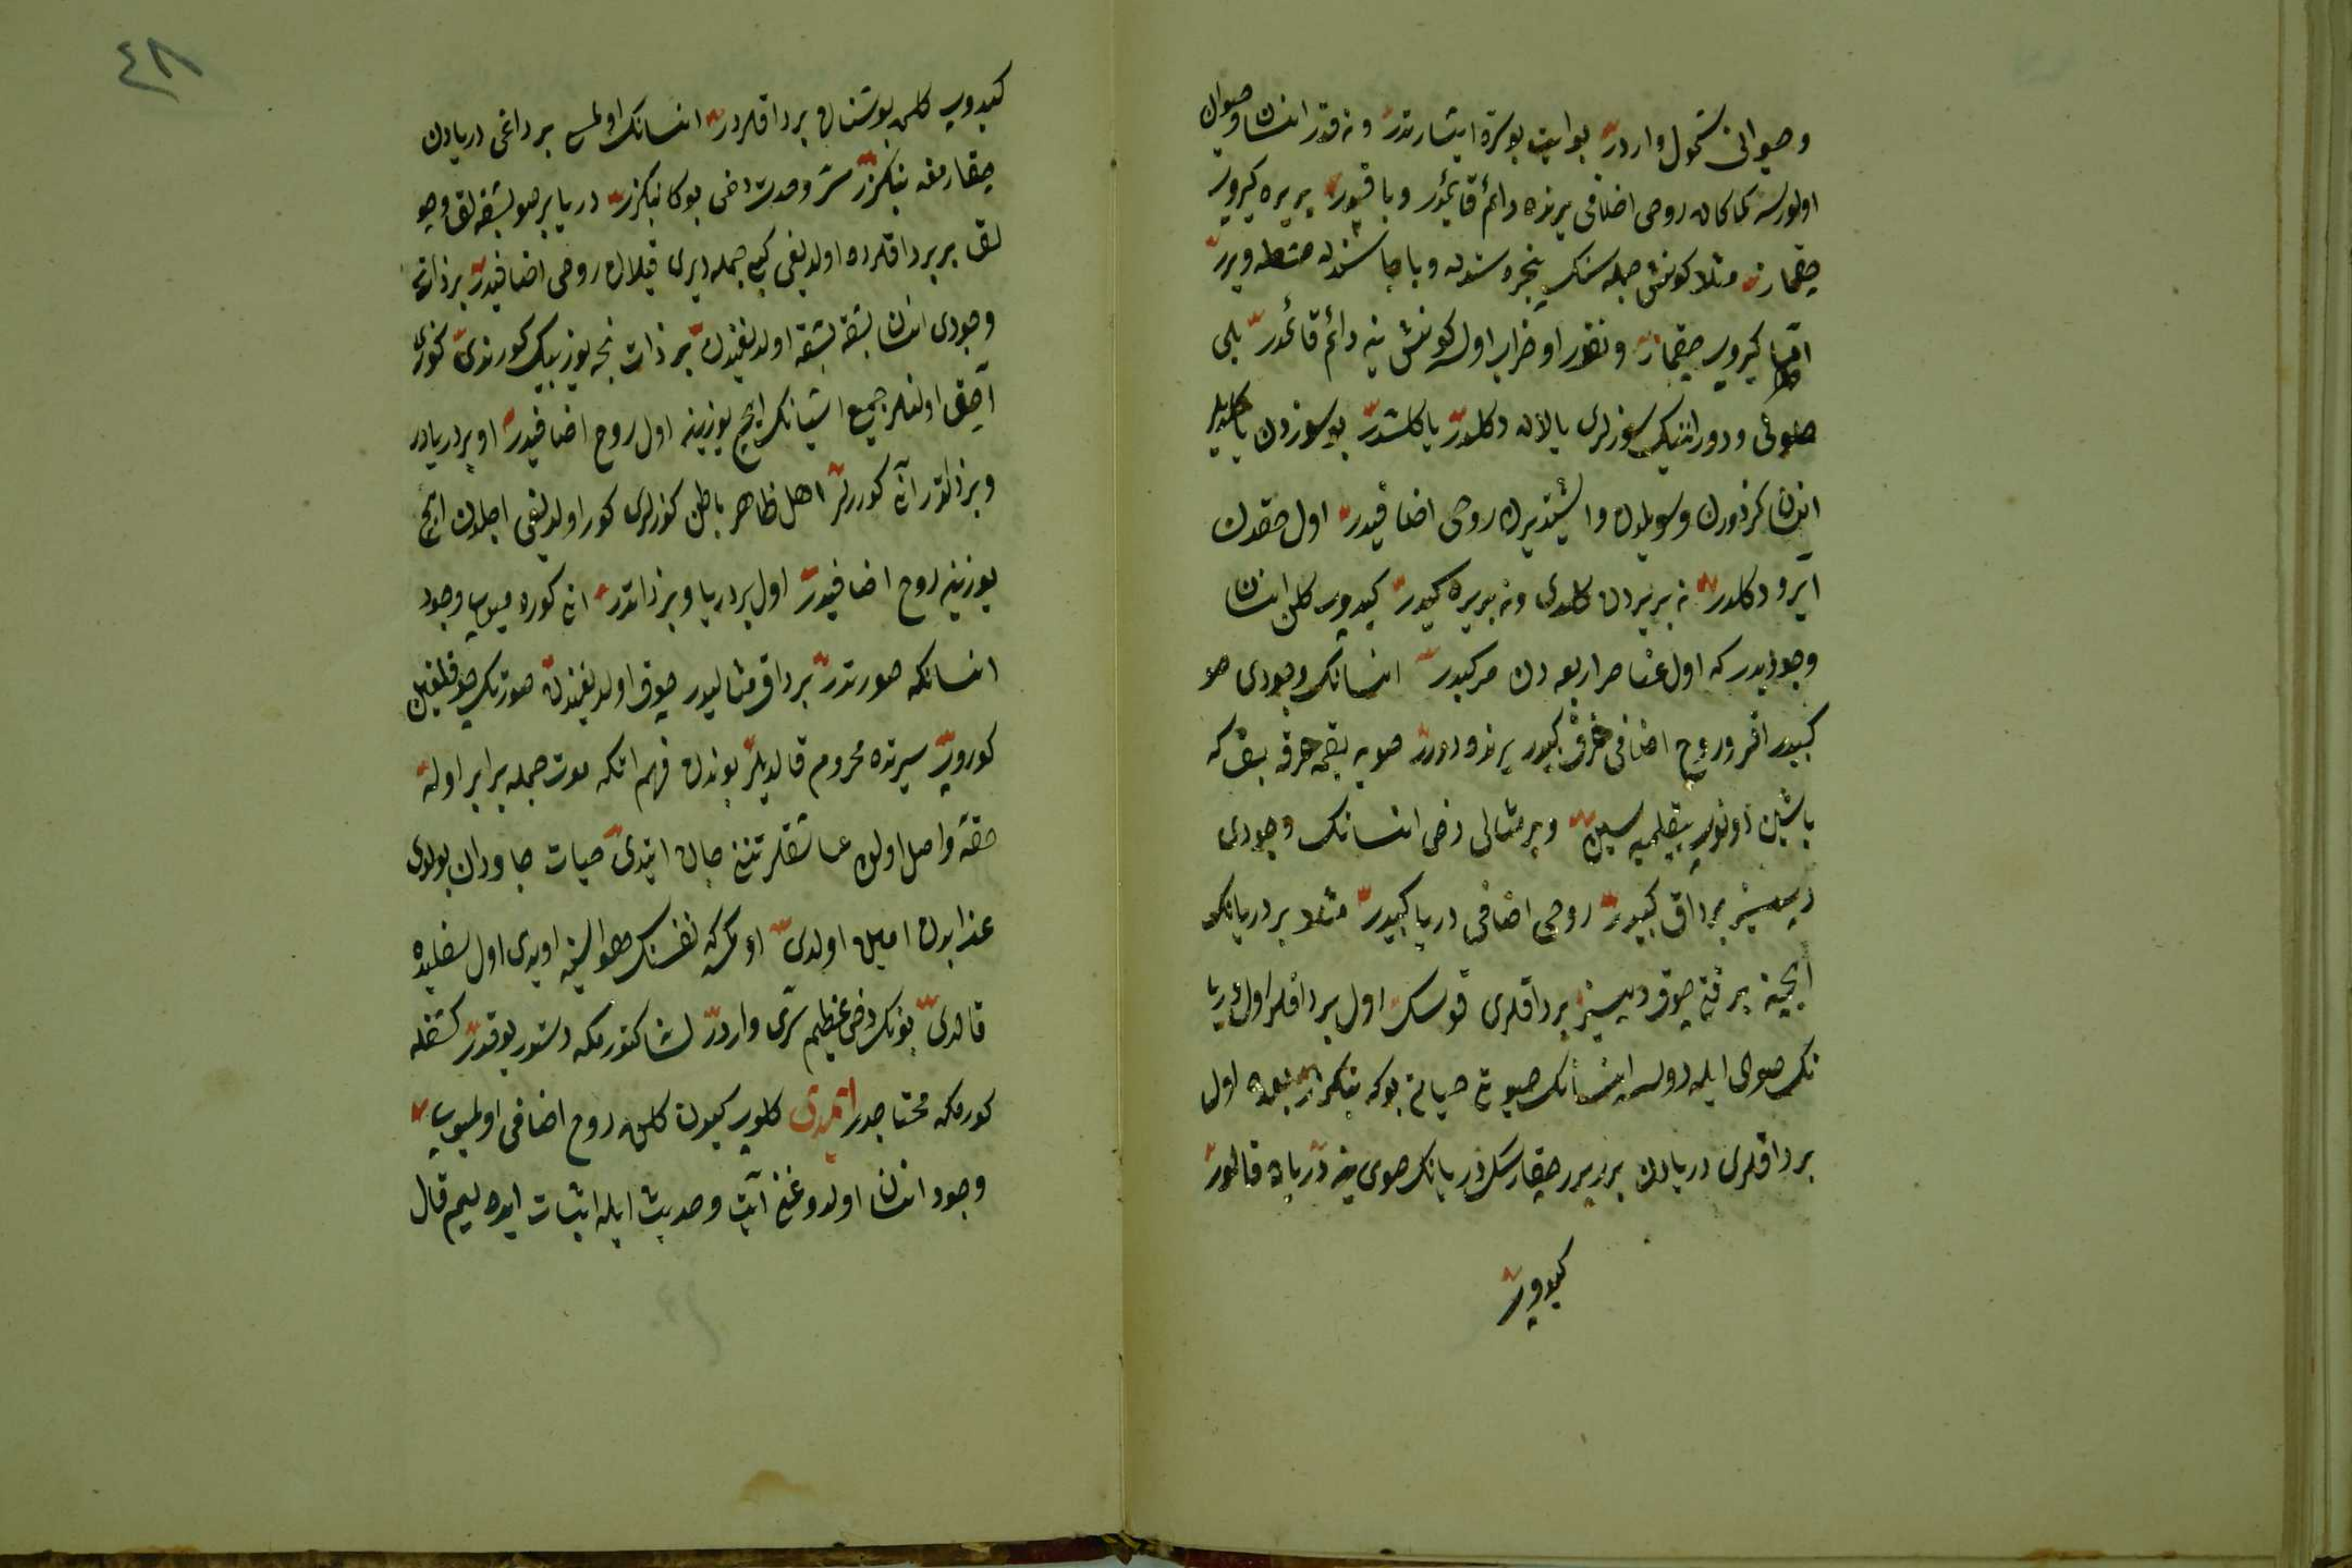 و حیوانی شمول واردر بو ایت بو سره اشارتدر و نه قدر انسان و حیوان
اولورسه کماکان روحی اضافی یرنده دائم قائمدر و باقیدر بر یره کیروب
چقماز مثلا کونش جمله سنک پنجره سندن و باجاسندن ویرر
اما کیروب چقماز و نقدر او خراب اولسه کونش ینه دائم قائمدر بلی
صوفی و دورانینک سوزلری یالان دکلدر یاکلشدر بو سوزدن
انسان کزدورن و سویلدن و اشیتدیرن روحی اضافیدر اول حقدن
آیرو دکلدر نه بر یردن کلدی و نه بر یره کیدر کیدوب کلن انسان
وجودیدر که اول عناصر اربعه دن مرکبدر انسانک وجودی
کبیدر روح اضافی کبیدر یرنده صویه بقمه حرفه بق که
باشین دونوب ییقلمیه سین و بر مثالی دخی انسانک وجودی
دیبسز برداق کبیدر روحی اضافی دریا کبیدر مثلا بر دریانک
ایچینه بر قچ چوق دیبسز برداقلری قوسک اول برداقلر اول دریا
نک صوی ایله دولسه انسانک حیاتی بوکه بنکزر اول
برداقلری دریادن برر برر چقارسک دریانک صوی ینه دریاده قالور
کیدوب
٤٨
کیدوب کلن بوشنان برداقلردر انسانک اولمسی برداغی دریادن
چقارمغه بنکزر سر وحدت دخی بوکا بنکزر دریا بر صو بشقه لق و چو
لق برر برداقلرده اولدیغی کبی جمله دیری قیلان روحی اضافیدر بر ذاتدر
وجودی انسان بشقه بشقه اولدیغندن بر ذات نجه یوز بیک کورندی کوزی
آچق اولنلر جمیع اشیانک ایچ یوزینه اول روح اضافیدر او بر دریادر
و بر ذاتدر آنی کوررلر اهل ظاهر باطن کوزلری کور اولدیغی اجلدن ایچ
یوزینه روح اضافیدر اول بر دریا و بر ذاتدر انی کوره میوب وجود
انسانکه صورتدر برداق مثالیدر چوق اولدیغندن صورتک چوقلغین
کوروب سیرتده محروم قالدیلر بوندن فهم اتکه موت جمله برابر اولمه
حقه واصل اولان عاشقلر تننی جان ایتدی حیات جاودان بولدی
عذابدن امین اولدی او کمسه که نفسنک هواسنه اویدی اول
قالدی بونک دخی عظیم سری واردر لسانا کتورمکه دستور یوقدر کشفله
کورمکه محتاجدر ایمدی کلوب کیدن کلن روح اضافی اولمیوب
وجود انسان اولدوغنی آیت و حدیث ایله اثبات ایده لیم قال